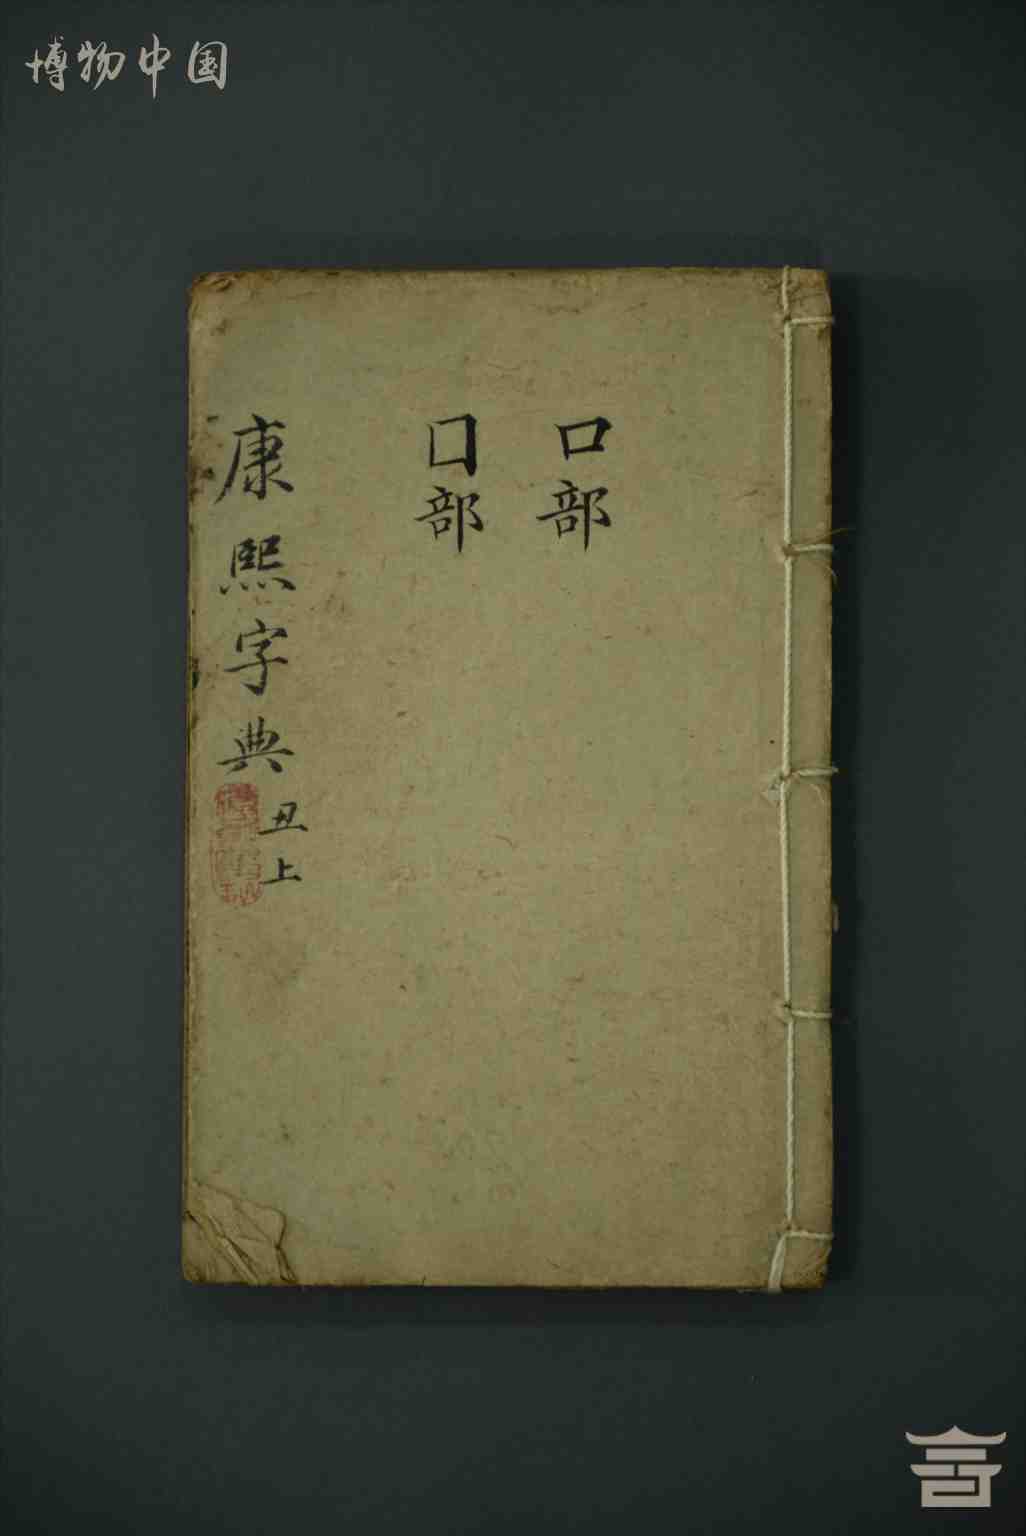 博物中国
口部
囗部
康熙字典
丑上